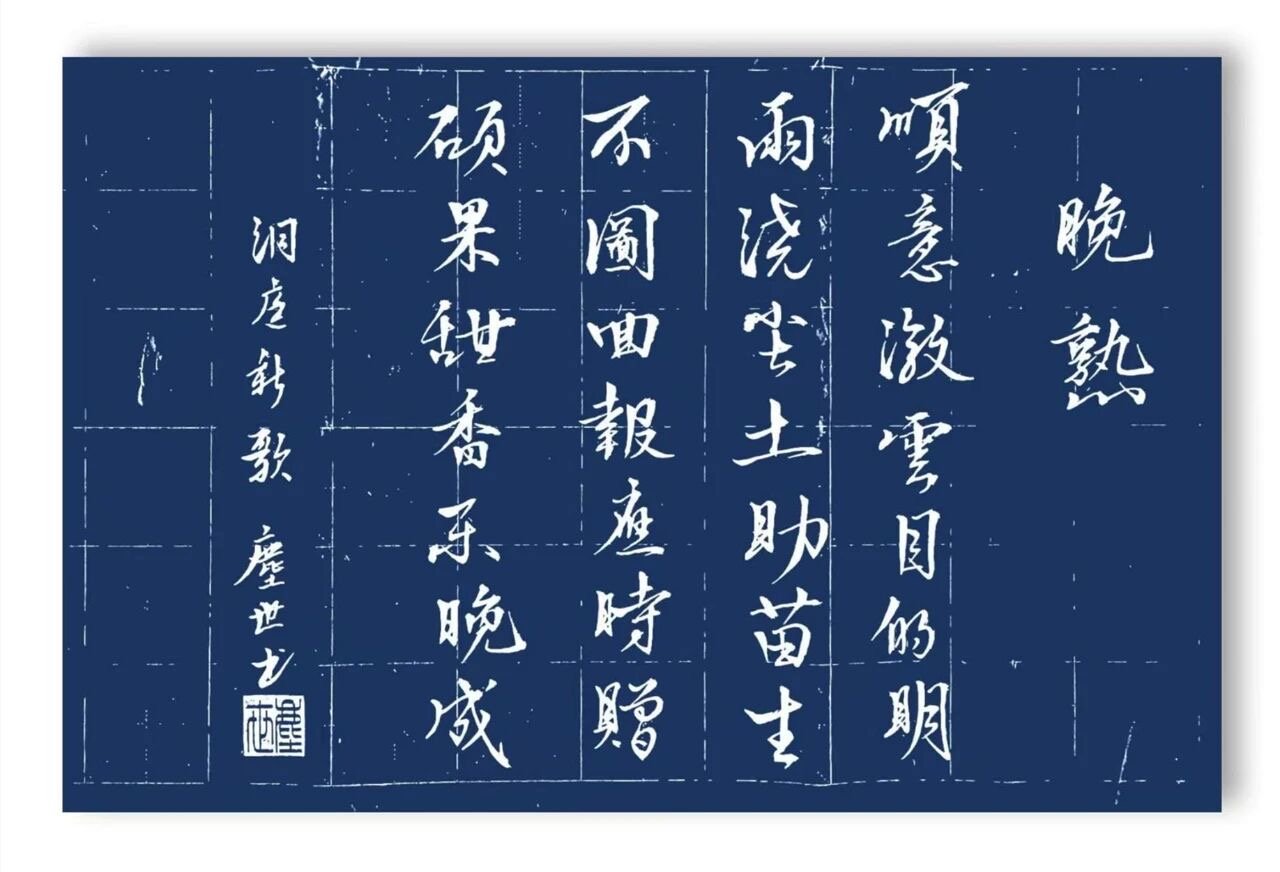 晚熟
順意激雲目的明
雨浇尘土助苗生
不圖回報應時贈
碩果甜香乐晚成
洞虛新歌 塵世书
塵世